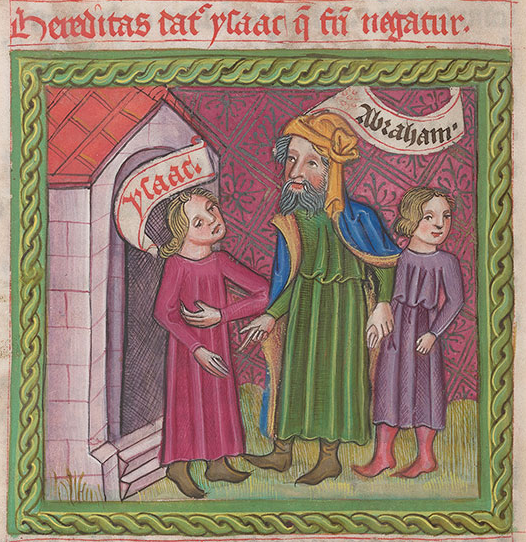 Hereditas dat᷒ ysaac q̄ frī negatur.
ysaac.
Abraham.